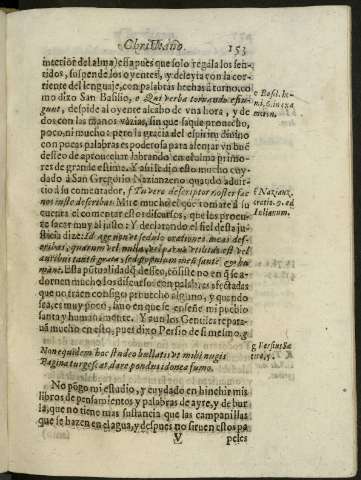 Christiano.
153
interior del alma) essa pues que solo regala los sen-
tidos, suspende los oyentes, y deleyta con la cor-
riente del lenguaje, con palabras hechas à torno, co-
mo dixo San Basilio, e Qui verba tornando effin-
gunt, despide al oyente al cabo de vna hora, y de
dos con las manos vazias, sin que saque prouecho,
poco, ni mucho: pero la gracia del espiritu diuino
con pocas palabras es poderosa para alentar vn buē
desseo de aprouechar labrando en el alma primo-
res de grande estima. Y assi le dio esto mucho cuy-
dado à San Gregorio Nazianzeno quādo aduir-
tio à su comentador, f Tu vero descriptor noster fac
nos iuste describas. Mire mucho el que tomare à su
cuenta el comentar estos discursos, que los procu-
re sacar muy al justo: Y declarando el fiel desta ju-
sticia dize: Id age non vt sedulo orationem meas des-
cribas, quarum vel nulla, vel parua vtilitas est vel
auribus tantū grata, sed populum
mane. Esta pūtualidad q̄ desseo, cōsiste no en q̄ se a-
dornen mucho los discursos con palabras afectadas
que no traen consigo prouecho alguno, y quando
sea, es muy poco, sino en que se enseñe mi pueblo
santa y humanamente. Y aun los Gentiles repara-
uā mucho en esto, pues dixo Persio de si mesmo, g
Non equidem hoc studeo bullatis vt mihi nugis
Pagina turgescat, dare pondus idonea fumo.
No pōgo mi estudio, y cuydado en hinchir mis
libros de pensamientos y palabras de ayre, y de bur
la, que no tiene mas sustancia que las campanillas
que se hazen en el agua, y despues no siruen estos pa
V
peles
e Basil. ho-
mi. 6. in exa
merin.
f Nazianz.
oratio. 9. ad
Iulianum.
g Persius Sa
tira, 5.